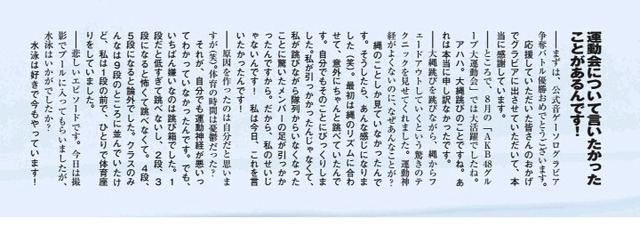 運動会について言いたかった
ことがあるんです！
――まずは、公式音ゲーソログラビア
争奪バトル優勝おめでとうございます。
　応援していただいた皆さんのおかげ
でグラビアに出させていただいて、本
当に感謝しています。
――ところで、８月の「ＡＫＢ４８グル
ープ大運動会」では大活躍でしたね。
　アハハ、大縄跳びのことですね。あ
れは本当に申し訳なかったです。
――大縄跳びを跳びながら、縄からフ
ェードアウトしていくという驚きのテ
クニックを見せてくれました。運動神
経がよくないのに、なぜあんなことが？
　縄のことしか見ていなかったんで
す。そしたら、あんな感じになりま
した（笑）。最初は縄のリズムに合わ
せて、意外にちゃんと跳べていたんで
す。自分でもそのことにびっくりしま
した。私が引っかかったんじゃなくて、
私が跳びながら隊列からいなくなった
ことに驚いたメンバーの足が引っかか
ったんですから。だから、私のせいじ
ゃないんです！　私は今日、これを言
いたかったんです！
――原因を作ったのは自分だと思いま
すが（笑）。体育の時間は憂鬱だった？
　それが、自分でも運動神経が悪いっ
てわかっていなかったんです。でも、
いちばん嫌いなのは跳び箱でした。１
段だと低すぎて跳べないし、２段、３
段になると怖くて跳べなくて。４段、
５段になると論外でした。クラスのみ
んなは９段のところに並んでいたけ
ど、私は１段の前で、ひとりで体育座
りをしていました。
――悲しいエピソードです。今日は撮
影でプールに入ってもらいましたが、
水泳はいかがでしたか？
　水泳は好きで今もやっています！